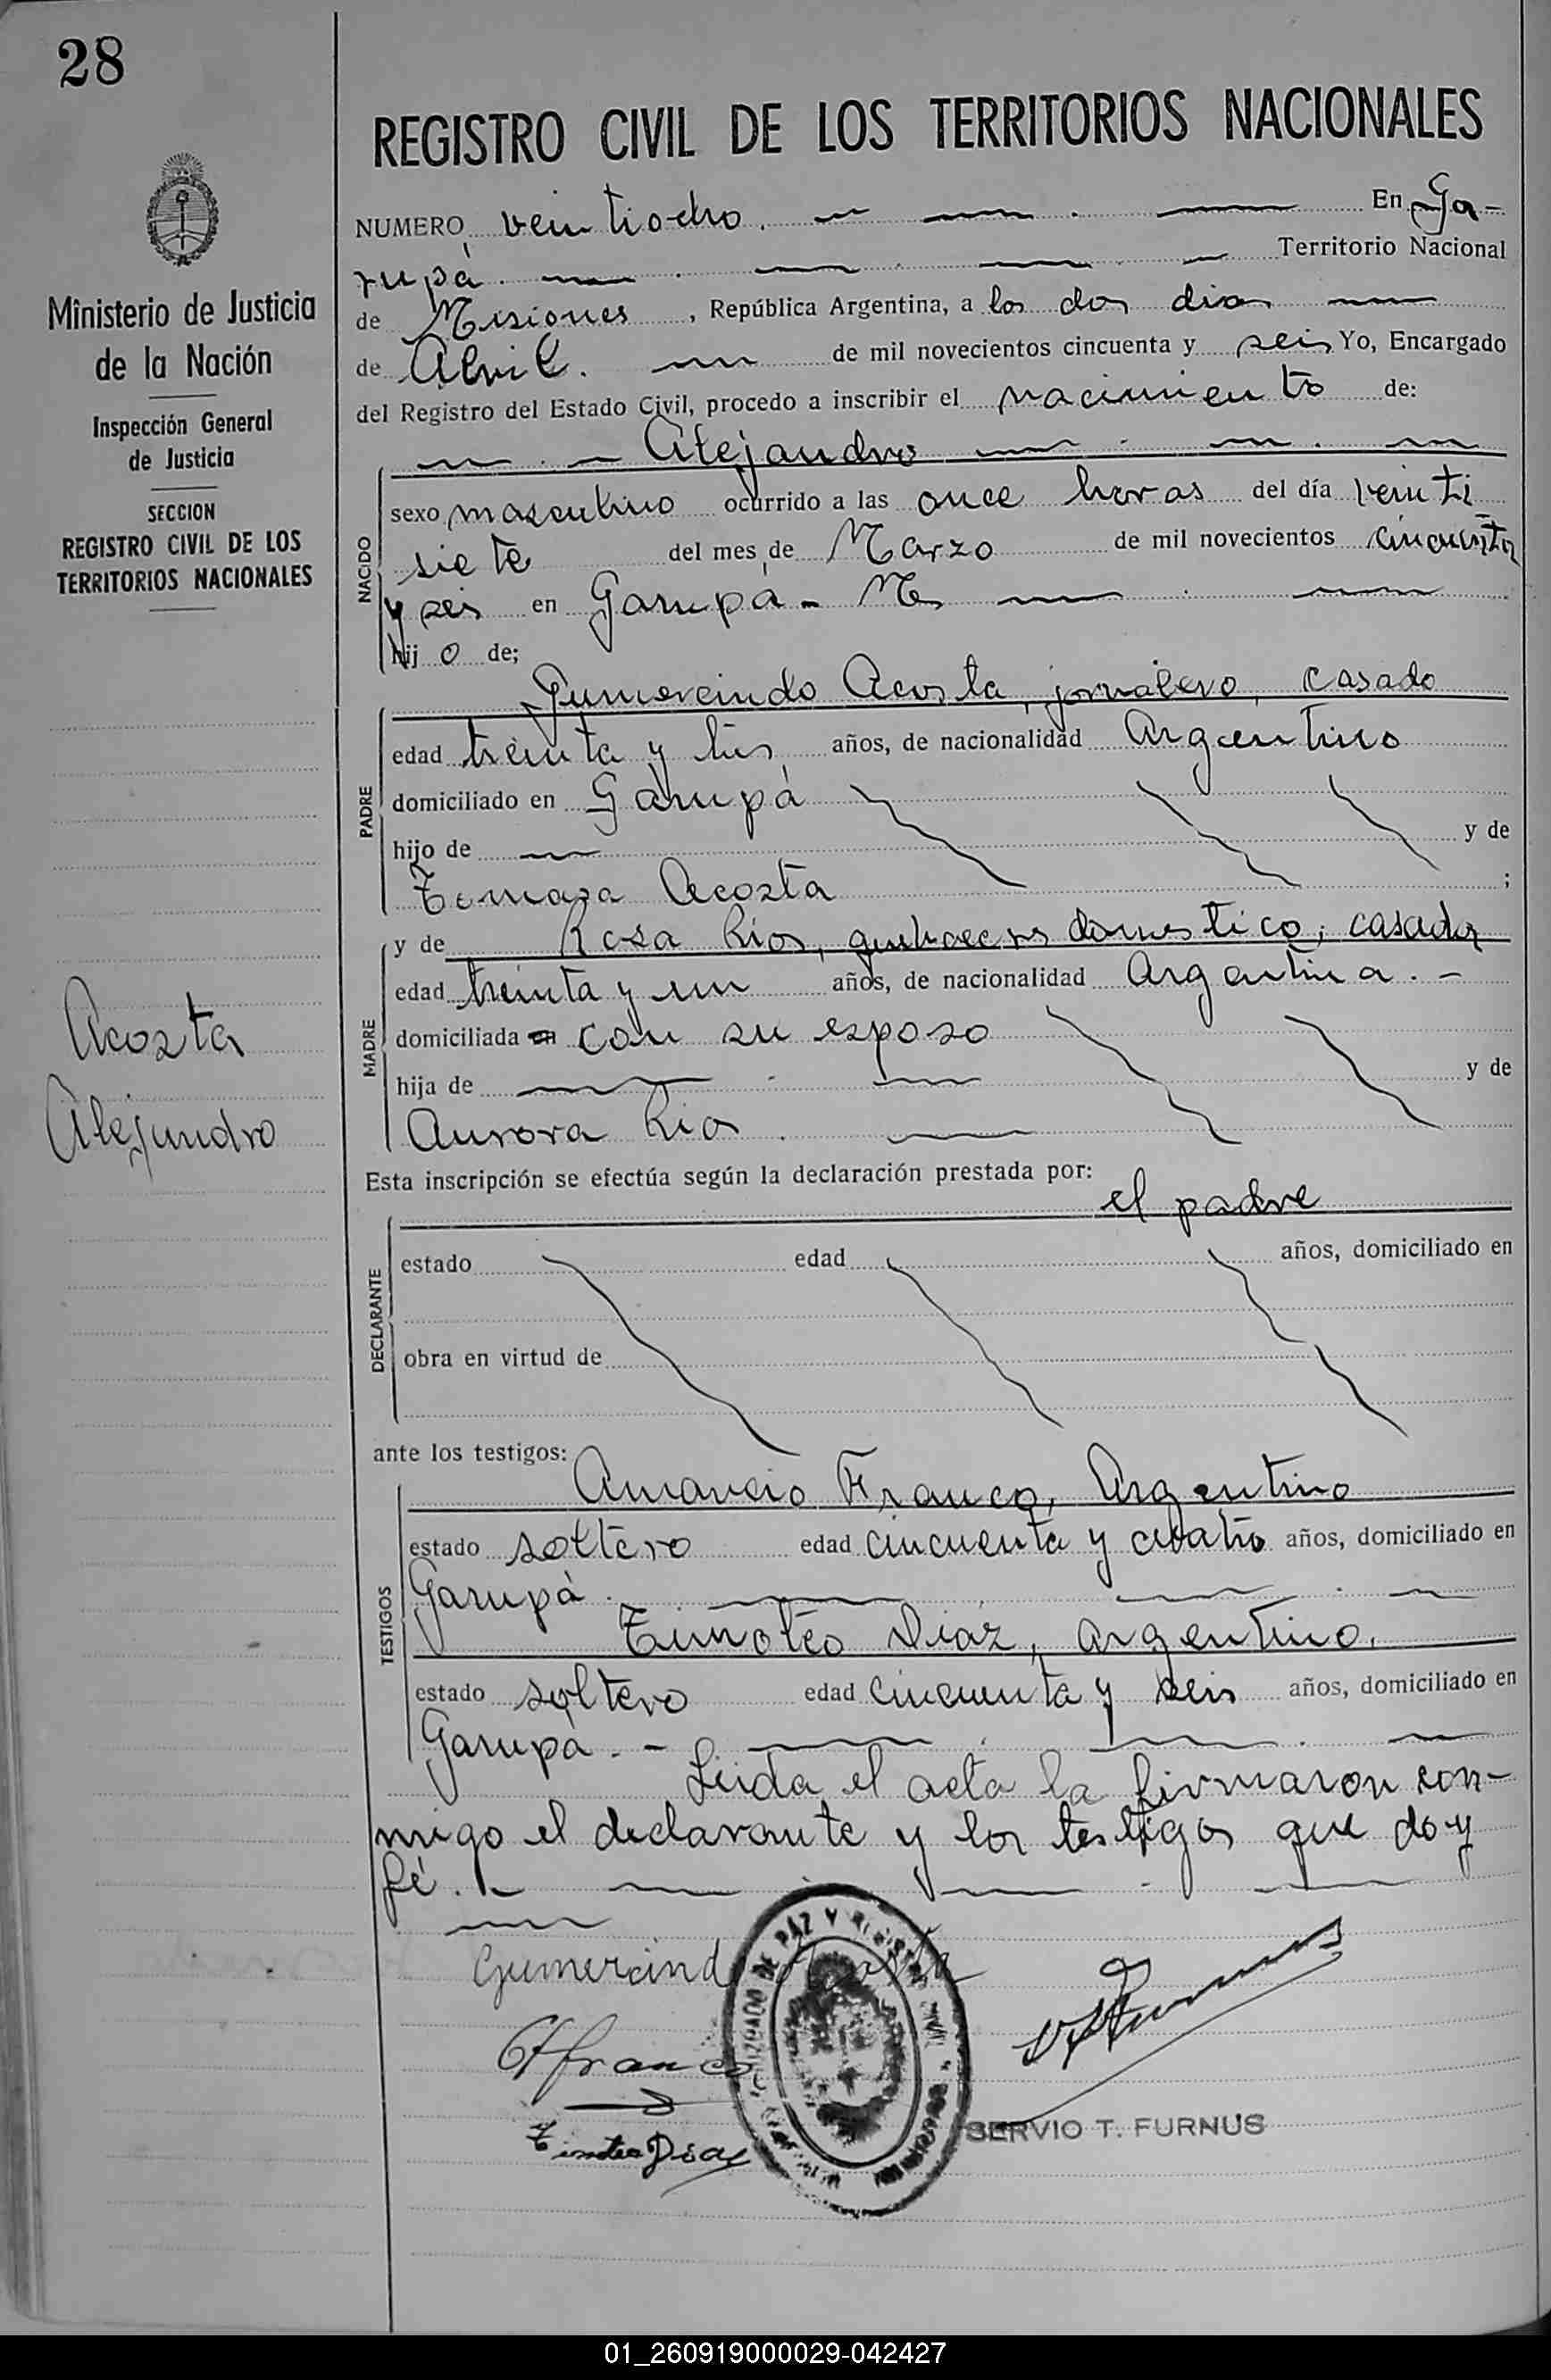 28
REGISTRO CIVIL DE LOS TERRITORIOS NACIONALES
Ministerio de Justicia
de la Nación
Inspección General
de Justicia
SECCION
REGISTRO CIVIL DE LOS
TERRITORIOS NACIONALES
NUMERO veintiocho. En Ga-
rupá. Territorio Nacional
de Misiones, República Argentina, a los dos dias
de Abril. de mil novecientos cincuenta y seis Yo, Encargado
del Registro del Estado Civil, procedo a inscribir el nacimiento de:
Alejandro
NACIDO
sexo masculino ocurrido a las once horas del día veinti
siete del mes de Marzo de mil novecientos cincuenta
y seis en Garupá - Ms
hijo de;
Gumercindo Acosta, jornalero, casado
PADRE
edad treinta y tres años, de nacionalidad Argentino
domiciliado en Garupá
hijo de y de
Tomasa Acosta ;
y de Rosa Rios, quehaceres domestico, casada
MADRE
edad treinta y un años, de nacionalidad Argentina. -
domiciliada en con su esposo
hija de y de
Aurora Rios
Acosta
Alejandro
Esta inscripción se efectúa según la declaración prestada por:
el padre
DECLARANTE
estado edad años, domiciliado en
obra en virtud de
ante los testigos:
Amancio Franco, Argentino
TESTIGOS
estado soltero edad cincuenta y cuatro años, domiciliado en
Garupá.
Timoteo Diaz, argentino.
estado soltero edad cincuenta y seis años, domiciliado en
Garupá. -
Leida el acta la firmaron con-
migo el declarante y los testigos que doy
fé.
Gumercindo Acosta
Afranco
Timoteo Diaz
JUZGADO DE PAZ Y REGISTRO CIVIL
SERVIO T. FURNUS
01_260919000029-042427